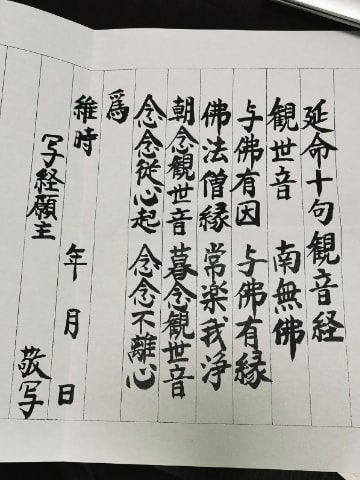 延命十句観音経
観世音 南無佛
与佛有因 与佛有縁
佛法僧縁 常楽我浄
朝念観世音 暮念観世音
念念従心起 念念不離心
為
維時 年 月 日
写経願主 敬写